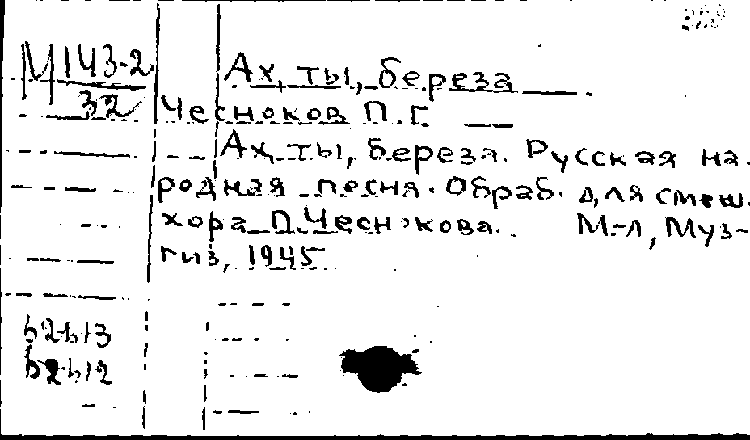 М143-2
32
Ах, ты, береза
Чесноков П.Г.
Ах, ты, береза. Русская на-
родная песня. Обраб. для смеш.
хора П. Чеснокова. М.-Л., Муз-
гиз, 1945